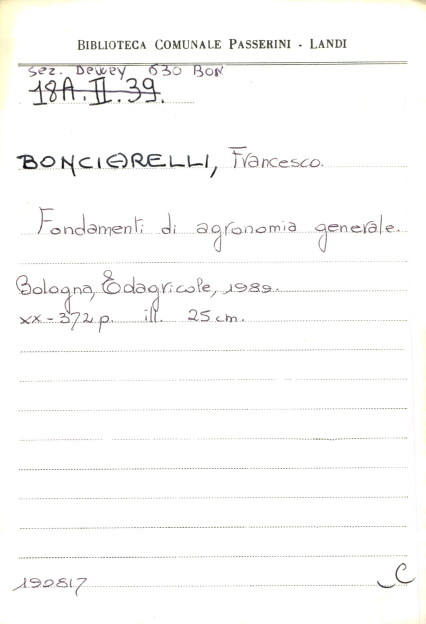 BIBLIOTECA COMUNALE PASSERINI - LANDI
sez. Dewey 630 BON
18A.II.39.
BONCIARELLI, Francesco.
Fondamenti di agronomia generale.
Bologna, Edagricole, 1989.
xx-372 p. ill. 25 cm.
190817
C